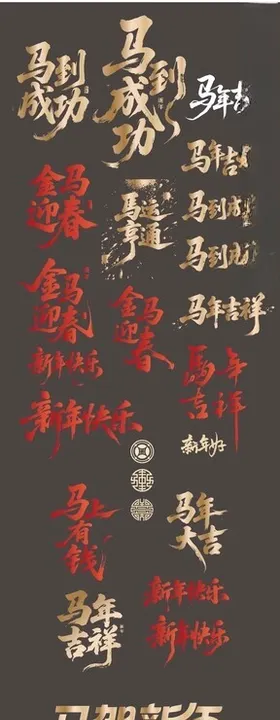 马到
成功
马到
成功
马年吉
马年吉
金马
迎春
马运
亨通
马到成
马到成
金马
迎春
金马
迎春
马年吉祥
新年快乐
馬年
吉祥
新年快乐
新年好
马上
有钱
马年
大吉
马年
吉祥
新年快乐
新年快乐
马贺新年